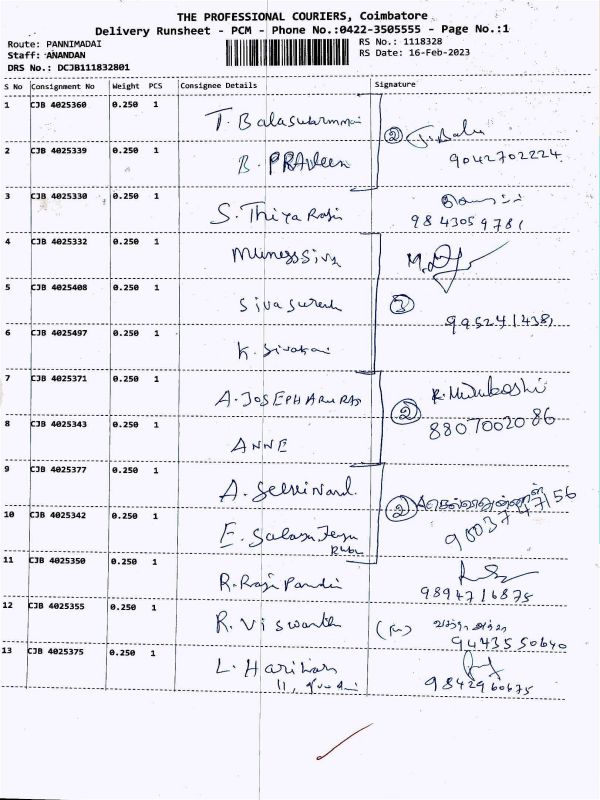 THE PROFESSIONAL COURIERS, Coimbatore
Delivery Runsheet - PCM - Phone No.:0422-3505555 - Page No.:1
Route: PANNIMADAI
RS No.: 1118328
Staff: ANANDAN
RS Date: 16-Feb-2023
DRS No.: DCJB111832801
S No Consignment No Weight PCS Consignee Details Signature
1 CJB 4025360 0.250 1 T. Balasubramani
② T. Balu
2 CJB 4025339 0.250 1 B. PRAVeen
9042702224
3 CJB 4025330 0.250 1 S. Thiya Raja
9843059781
4 CJB 4025332 0.250 1
5 CJB 4025408 0.250 1 Siva Suresh ③
9952414381
6 CJB 4025497 0.250 1 K.
7 CJB 4025371 0.250 1 A. JOSEPH
② 8807002086
8 CJB 4025343 0.250 1 ANNE
9 CJB 4025377 0.250 1 A.
②
10 CJB 4025342 0.250 1 E.
11 CJB 4025350 0.250 1 R. Raja Pandi
9894716875
12 CJB 4025355 0.250 1 R. Viswanth
9443550640
13 CJB 4025375 0.250 1 L. Hariharan
9842960675